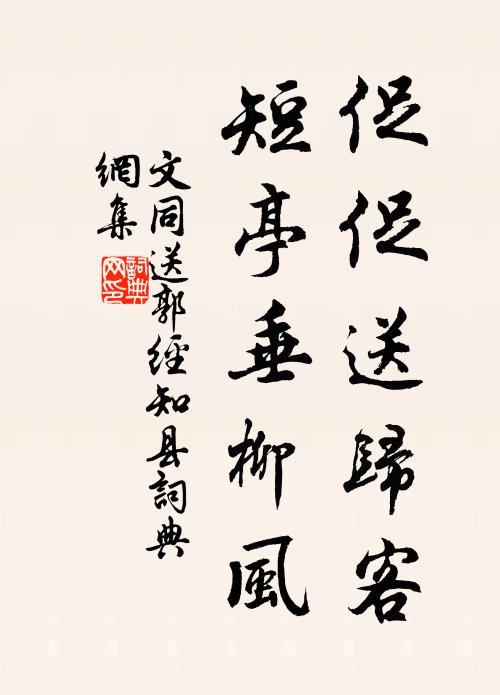 促促送歸客
短亭垂柳風
文同送郭經知县詞典
網集
詞典
网印